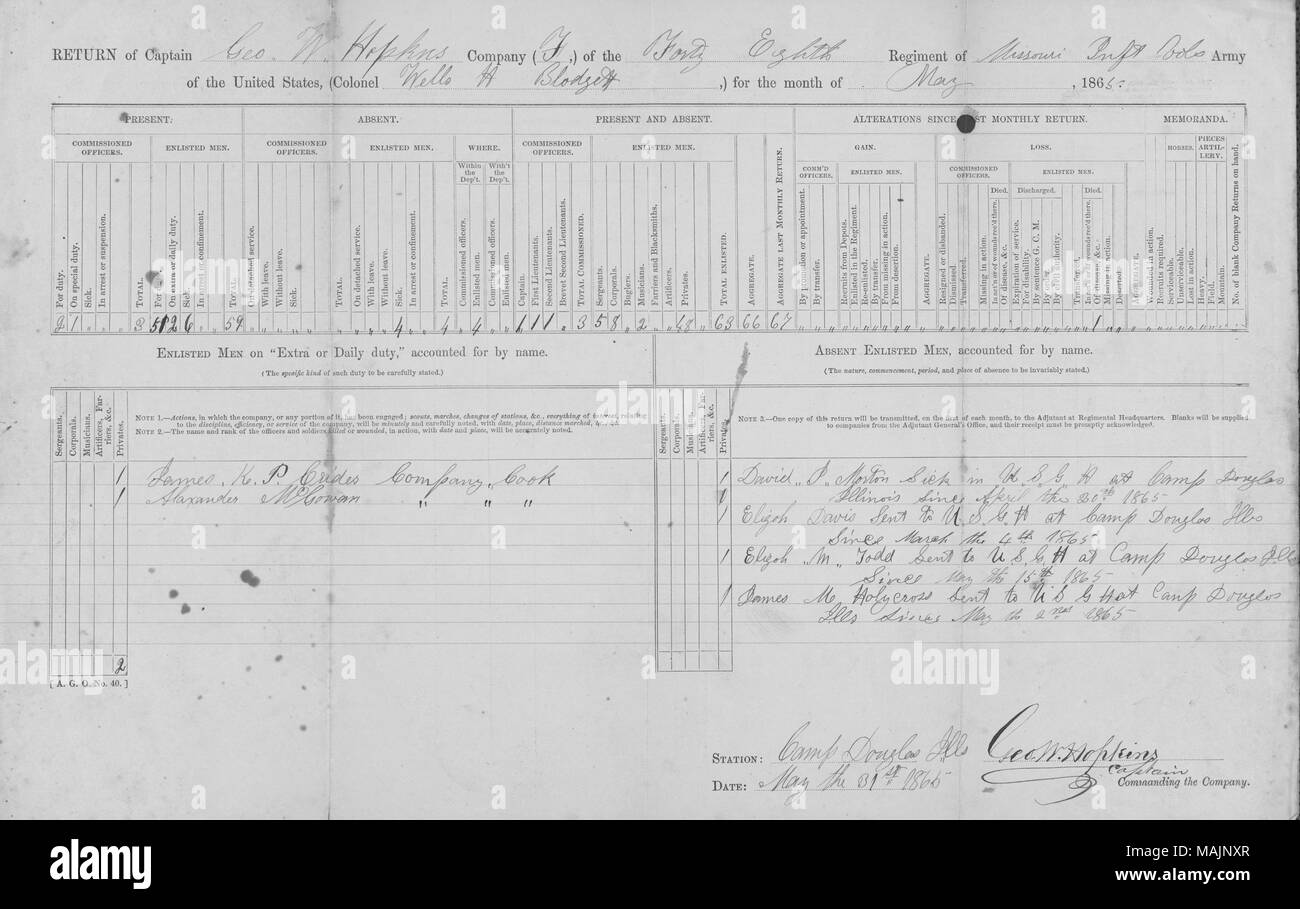 RETURN of Captain Geo. W. Hopkns Company (F,) of the Forty Eighth Regiment of Missouri Inft Vols Army
of the United States, (Colonel Wells H Blodgett ,) for the month of May , 1865.
PRESENT. ABSENT. PRESENT AND ABSENT. ALTERATIONS SINCE LAST MONTHLY RETURN. MEMORANDA.
COMMISSIONED OFFICERS. ENLISTED MEN. COMMISSIONED OFFICERS. ENLISTED MEN. WHERE. COMMISSIONED OFFICERS. ENLISTED MEN. GAIN. LOSS. HORSES. PIECES ARTILLERY.
Within the Dep't. With't the Dep't. COMM'D OFFICERS. ENLISTED MEN. COMMISSIONED OFFICERS. ENLISTED MEN.
Died. Discharged. Died.
For duty. On special duty. Sick. In arrest or suspension. TOTAL. For duty. On extra or daily duty. Sick. In arrest or confinement. TOTAL. On detached service. With leave. Without leave. Sick. TOTAL. On detached service. With leave. Without leave. Sick. In arrest or confinement. TOTAL. Commissioned officers. Enlisted men. Commissioned officers. Enlisted men. Captain. First Lieutenants. Second Lieutenants. Brevet Second Lieutenants. TOTAL COMMISSIONED. Sergeants. Corporals. Buglers. Musicians. Farriers and Blacksmiths. Artificers. Privates. TOTAL ENLISTED. AGGREGATE. AGGREGATE LAST MONTHLY RETURN. By promotion or appointment. By transfer. Recruits from Depots. Enlisted in the Regiment. Re-enlisted. By transfer. From missing in action. From desertion. AGGREGATE. Resigned or disbanded. Dismissed. Transferred. Missing in action. In action or of wounds rec'd there. Of disease, &c. Expiration of service. For disability. By sentence G. C. M. By order. By civil authority. Transferred. In action or of wounds rec'd there. Of disease, &c. Missing in action. Deserted. AGGREGATE. Wounded in action. Recruits required. Serviceable. Unserviceable. Lost in action. Heavy. Field. Mountain. No. of blank Company Returns on hand.
2 1 " " 3 51 2 6 " 59 " " " " " " " " 4 " 4 " 4 " " 1 1 1 " 3 5 8 " 2 " " 48 63 66 67
ENLISTED MEN ON "EXTRA OR DAILY DUTY," accounted for by name. ABSENT ENLISTED MEN, accounted for by name.
(The specific kind of such duty to be carefully stated.) (The nature, commencement, period, and place of absence to be invariably stated.)
Sergeants. Corporals. Musicians. Artificers, Farriers, &c. Privates.
NOTE 1.—Actions, in which the company, or any portion of it, has been engaged; scouts, marches, changes of stations, &c., everything of interest, relating
to the discipline, efficiency, or service of the company, will be minutely and carefully noted, with date, place, distance marched, &c. &c.
NOTE 2.—The name and rank of the officers and soldiers killed or wounded, in action, with date and place, will be accurately noted.
Sergeants. Corporals. Musicians. Artificers, Farriers, &c. Privates.
NOTE 3.—One copy of this return will be transmitted, on the first of each month, to the Adjutant at Regimental Headquarters. Blanks will be supplied
to companies from the Adjutant General's Office, and their receipt must be promptly acknowledged.
1 James K. P. Crider Company Cook
1 Alaxander McGowan " " "
2
[A. G. O. No. 40.]
1 David P. Morton Sick in U.S.G.H at Camp Douglas
1 Illinois Since April the 30th 1865
Elijah Davis Sent to U.S.G.H at Camp Douglas Ills
Since March the 4th 1865
1 Elijah "M" Todd Sent to U.S.G.H at Camp Douglas Ills
Since May the 15th 1865
1 James M. Holycross Sent to U.S.G.H at Camp Douglas
Ills Since May th 2nd 1865
STATION: Camp Douglas Ills
DATE: May the 31st 1865
Geo. W. Hopkins
Captain
Commanding the Company.
alamy
Image ID: MAJNXR
www.alamy.com